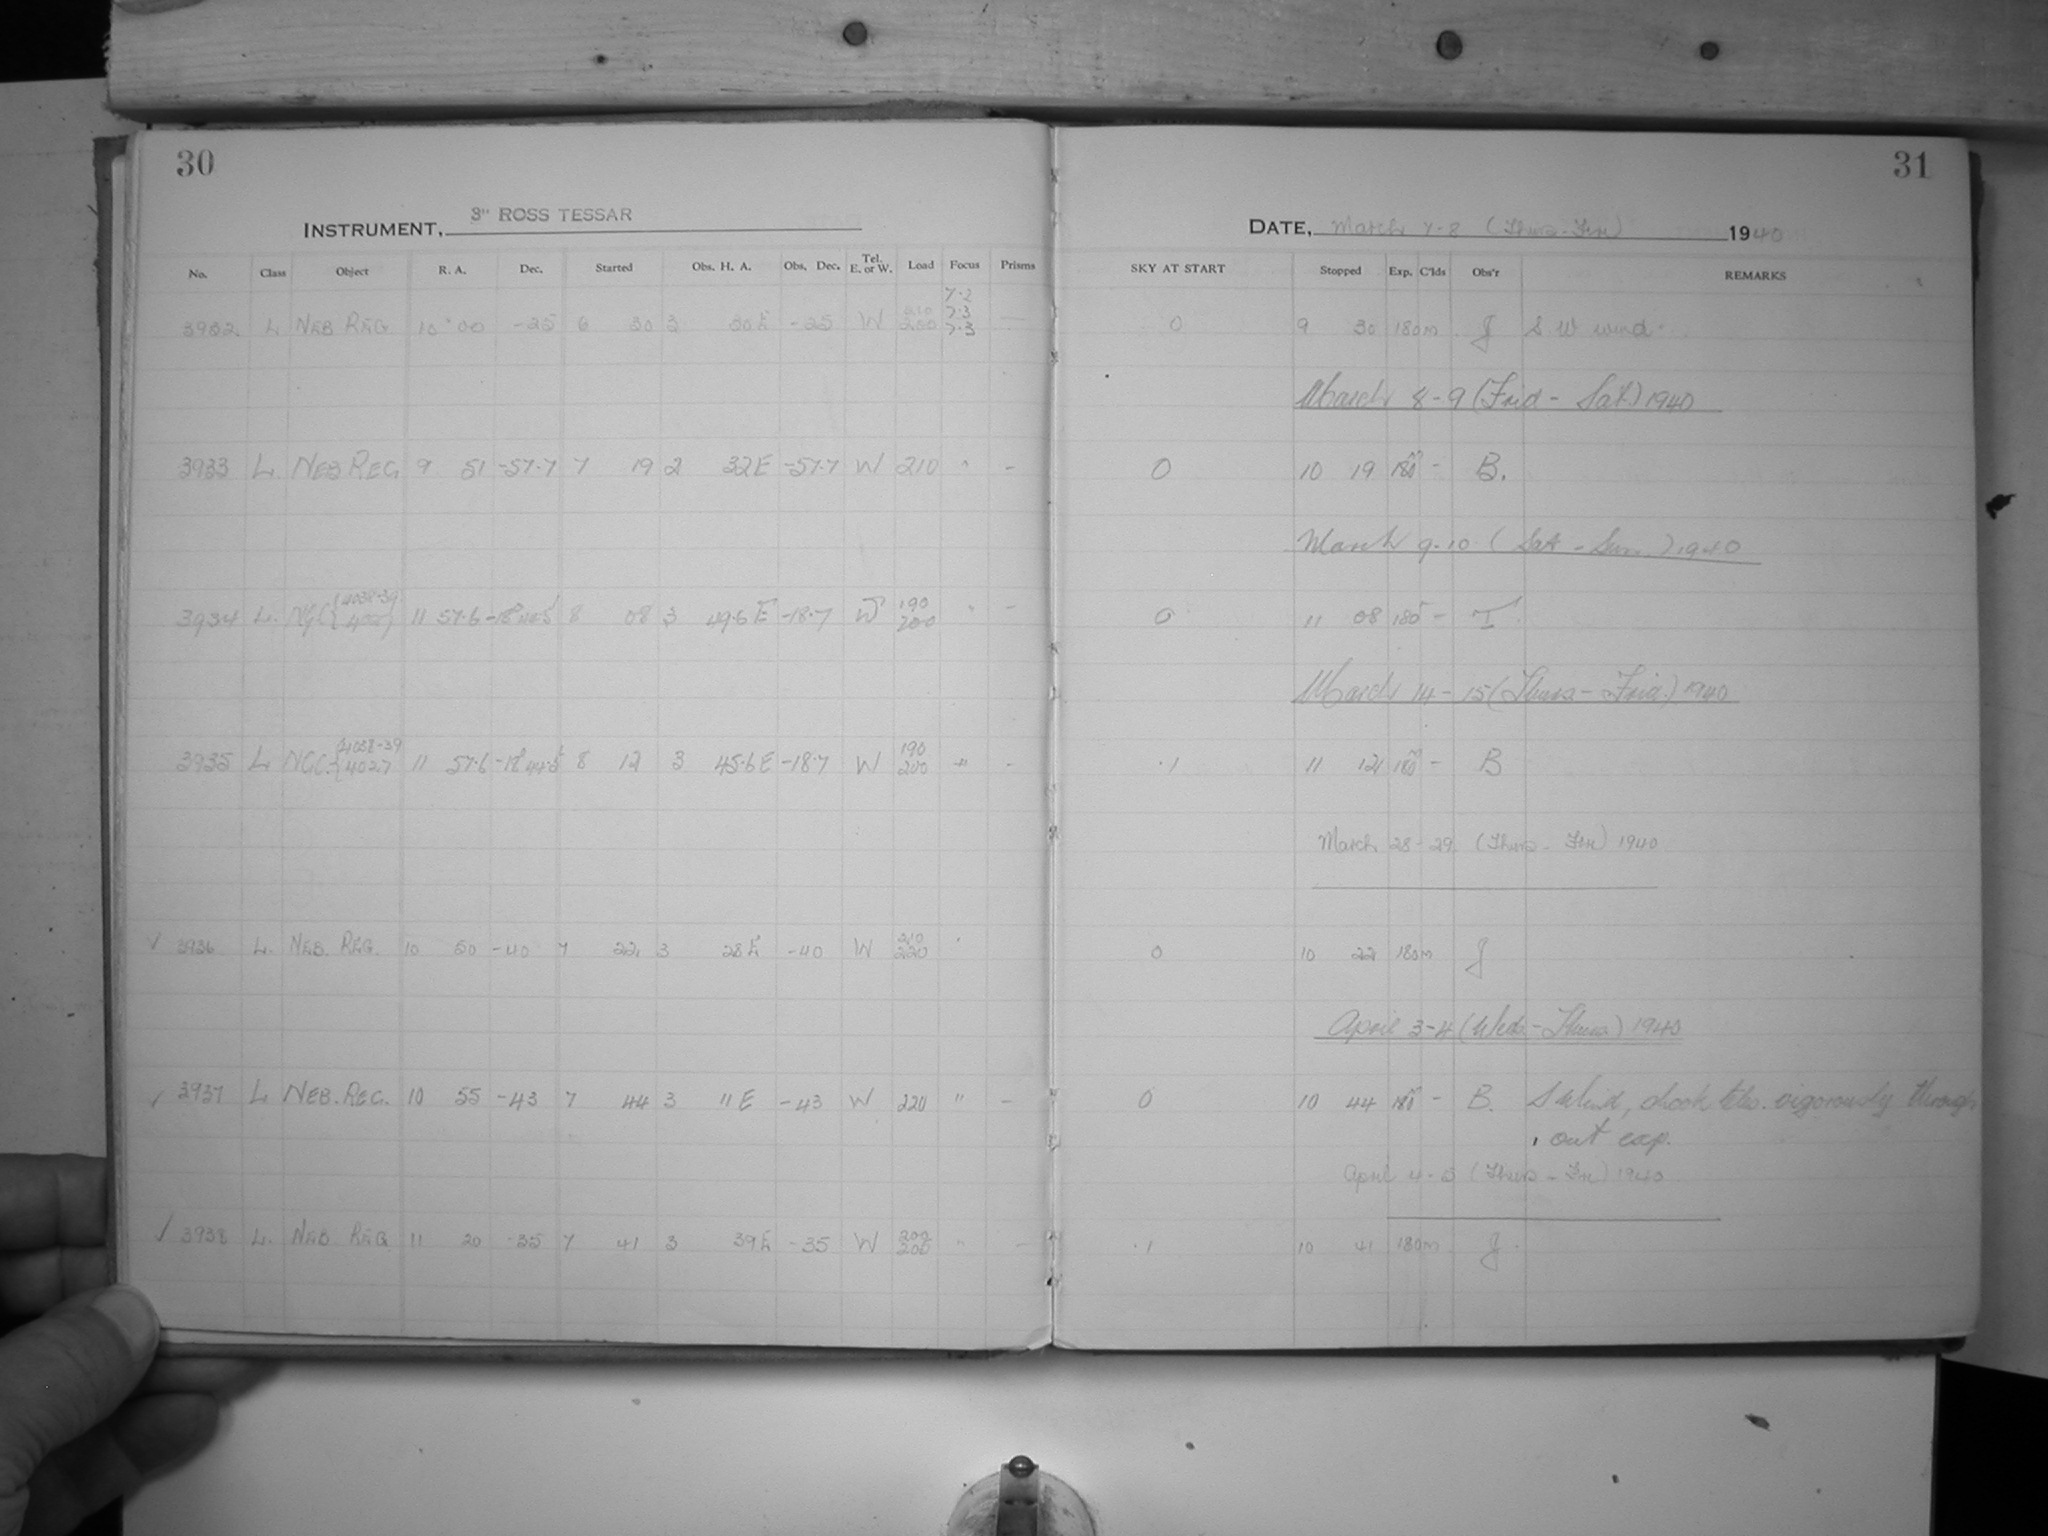 30
INSTRUMENT, 3" ROSS TESSAR
No. Class Object R. A. Dec. Started Obs. H. A. Obs. Dec. Tel. E. or W. Load Focus Prisms
3932 L NEB REG 10 00 -25 6 30 3 30E -25 W 210 200 7.2 7.3 7.3 —
3933 L. NEB REG 9 51 -57.7 7 19 2 32E -57.7 W 210 " -
3934 L. NGC { 4038-39 4027 } 11 57.6 8 08 3 49.6E -18.7 W 190 200 " -
3935 L NGC. { 4038-39 4027 11 57.6 -18 44.5 8 12 3 45.6E -18.7 W 190 200 " -
✓ 3936 L. NEB. REG. 10 50 -40 7 22 3 28E -40 W 210 220 "
✓ 3937 L NEB. REG. 10 55 -43 7 44 3 11E -43 W 220 " -
✓ 3938 L. NEB REG 11 20 -35 7 41 3 39E -35 W 200 200 " —
31
DATE, March 7-8 (Thurs-Fri) 1940
SKY AT START Stopped Exp. C'lds Obs'r REMARKS
0 9 30 180m J S.W wind.
March 8-9 (Frid - Sat) 1940
0 10 19 180 - B.
March 9-10 (Sat - Sun.) 1940
0 11 08 180 -
March 14-15 (Thurs - Frid.) 1940
.1 11 12 180 - B
March 28-29 (Thurs - Fri) 1940
0 10 22 180m J
April 3-4 (Weds - Thurs) 1940
0 10 44 180 - B. S Wind, shook tele. vigorously through
out exp.
April 4-5 (Thurs - Fri) 1940
.1 10 41 180m J.